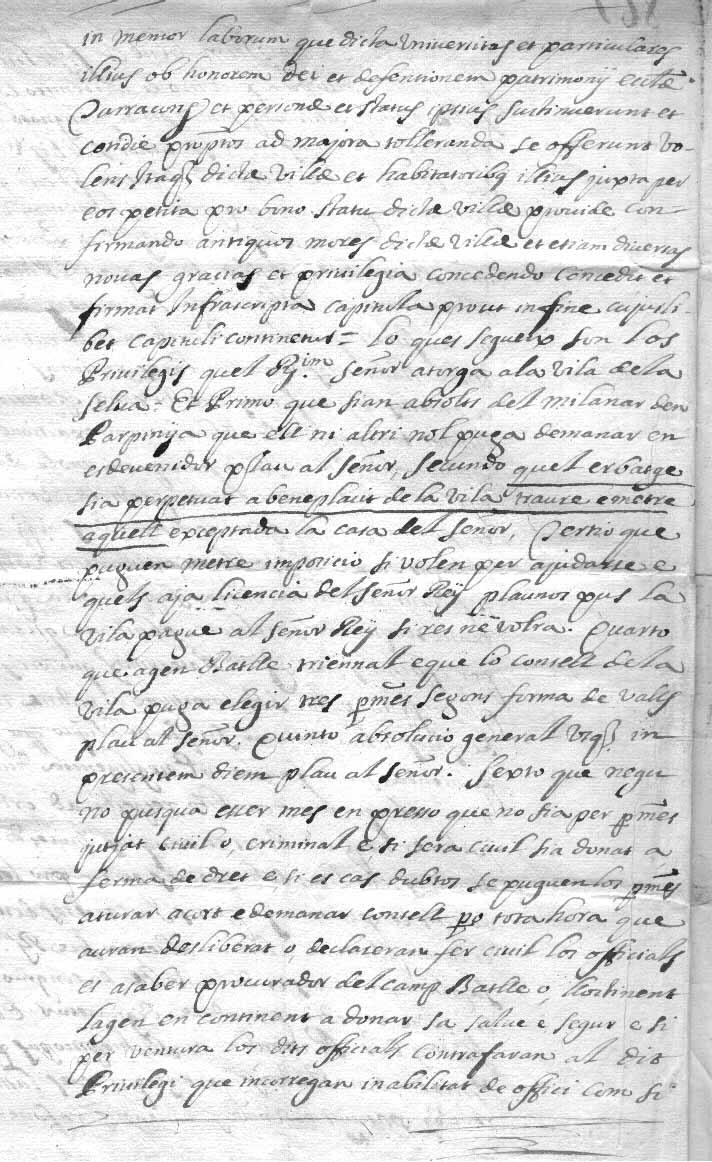 in memor laborum que dicta Universitas et particulares
illius ob honorem dei et defentionem patrimonij Ecctæ
Tarracons et personæ et status ipsius sustinuerunt et
cotidie promptos ad majora tolleranda se offerunt vo-
lens itaq dictæ Villæ et habitatoribq illius juxta per
eos petita pro bono statu dictæ villæ provide Con-
firmando antiquos mores dictæ villæ et etiam diversas
novas gracias et privilegia concedendo Concedit et
firmat infrascripta capitula prout in fine cujusli-
bet Capituli continetur = lo ques segueix son los
Privilegis quel R.im señor atorga a la vila de la
selva = Et Primo que sian absolts del milanar den
Parpinya que ell ni altri nol puga demanar en
esdevenidor plau al señor, secundo quel erbatge
sia perpetuat a beneplacit de la vila traure e metre
aquell exceptada la casa del señor, Tertio que
puguen metre imposicio si volen per ajudarse e
quels aja licencia del señor Rey plaunos pus la
vila pague al señor Rey si res nē volra. Quarto
que agen Batlle triennal e que lo consell de la
vila puga elegir tres pmēs segons forma de valls
plau al señor. Quinto absolucio general usq in
presentem diem plau al señor. Sexto que negu
no pusqua esser mes en preso que no sia per pmēs
jutjat civil o, criminal e si sera civil sia donat a
ferma de dret e, si es cas dubtos se puguen los pmēs
aturar acort e demanar consell po tota hora que
auran desliberat o declararan fer civil los officials
es asaber procurador del camp Batlle o, lloctinent
lagen en continent a donar sa salve e segur e si
per ventura los dits officials contrafaran al dit
Privilegi que incorregan inabilitat de offici Com si